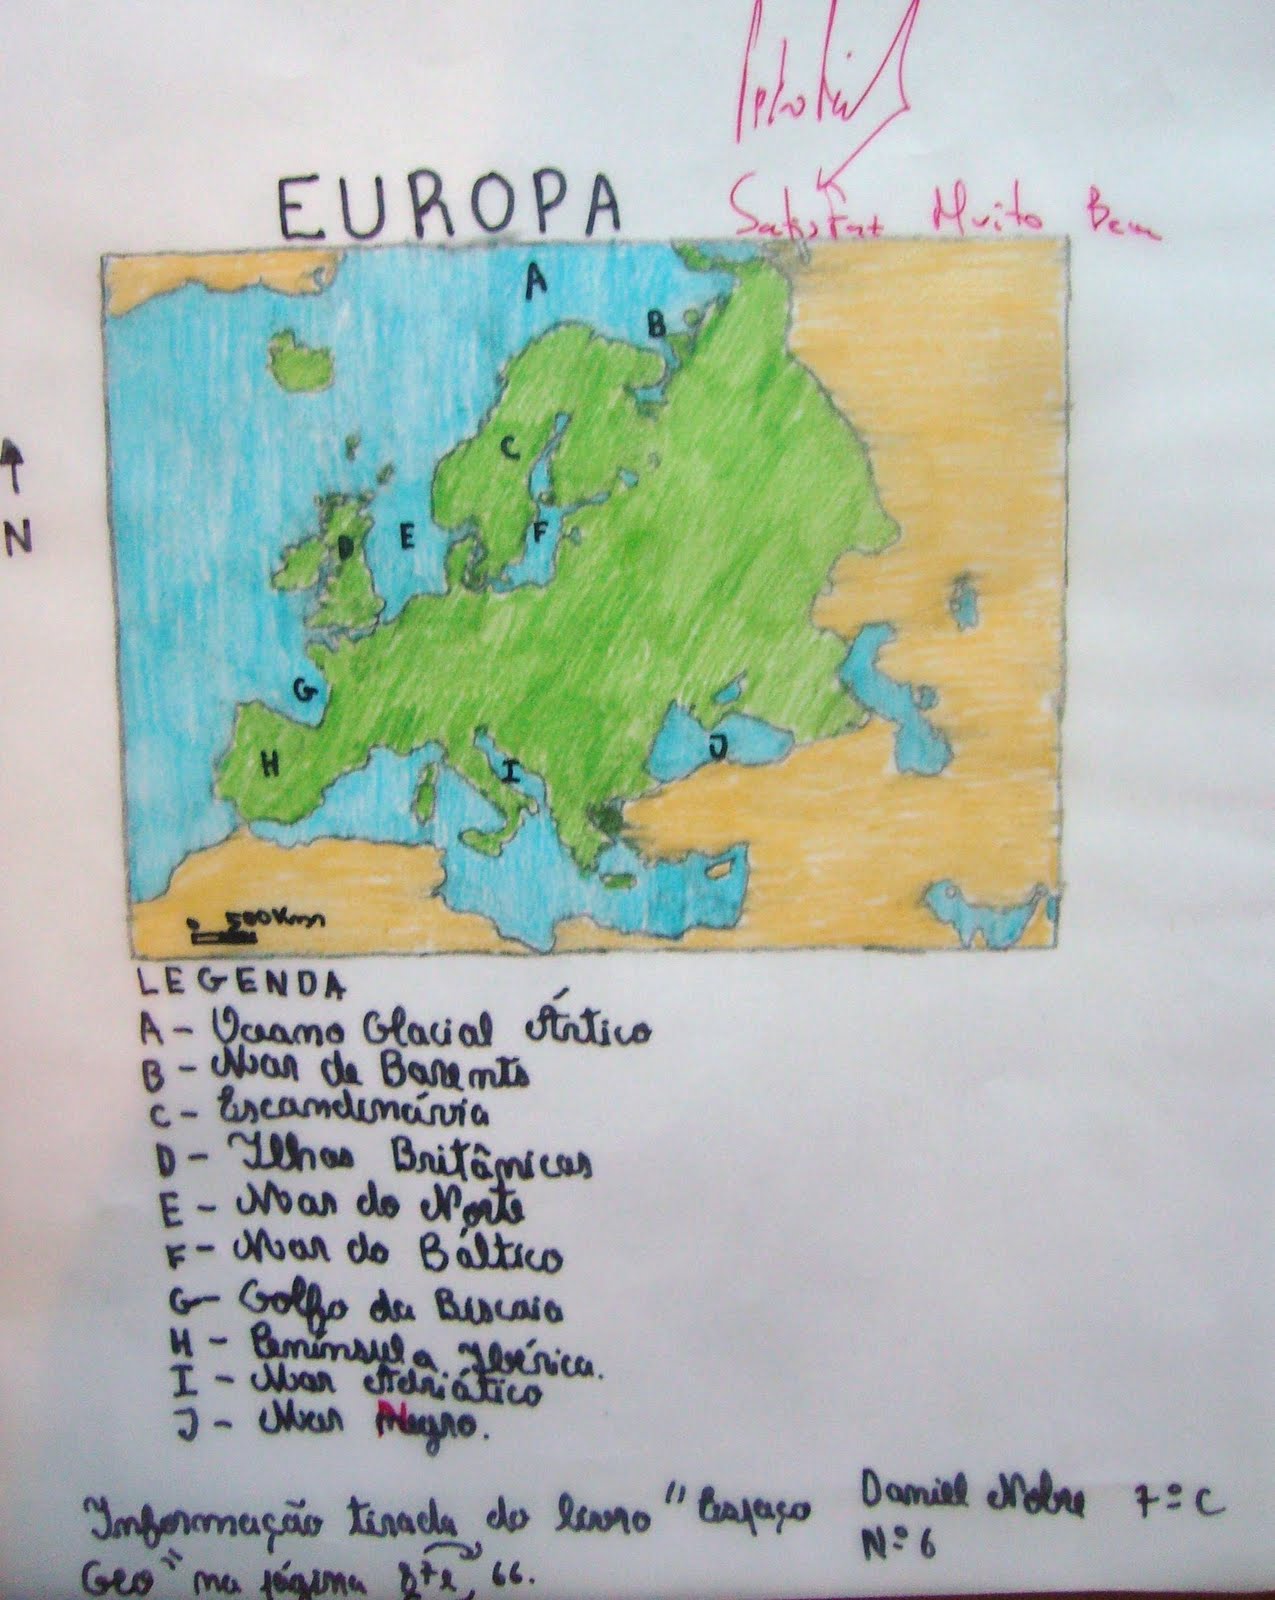 EUROPA
Satisfat Muito Bem
A
B
C
N
D
E
F
G
H
I
J
0 500Km
LEGENDA
A - Oceano Glacial Ártico
B - Mar de Barents
C - Escandinávia
D - Ilhas Britânicas
E - Mar do Norte
F - Mar do Báltico
G - Golfo da Biscaia
H - Península Ibérica.
I - Mar Adriático
J - Mar Negro.
Informação tirada do livro "Espaço
Geo" na página 66.
Daniel Nobre 7º C
Nº 6